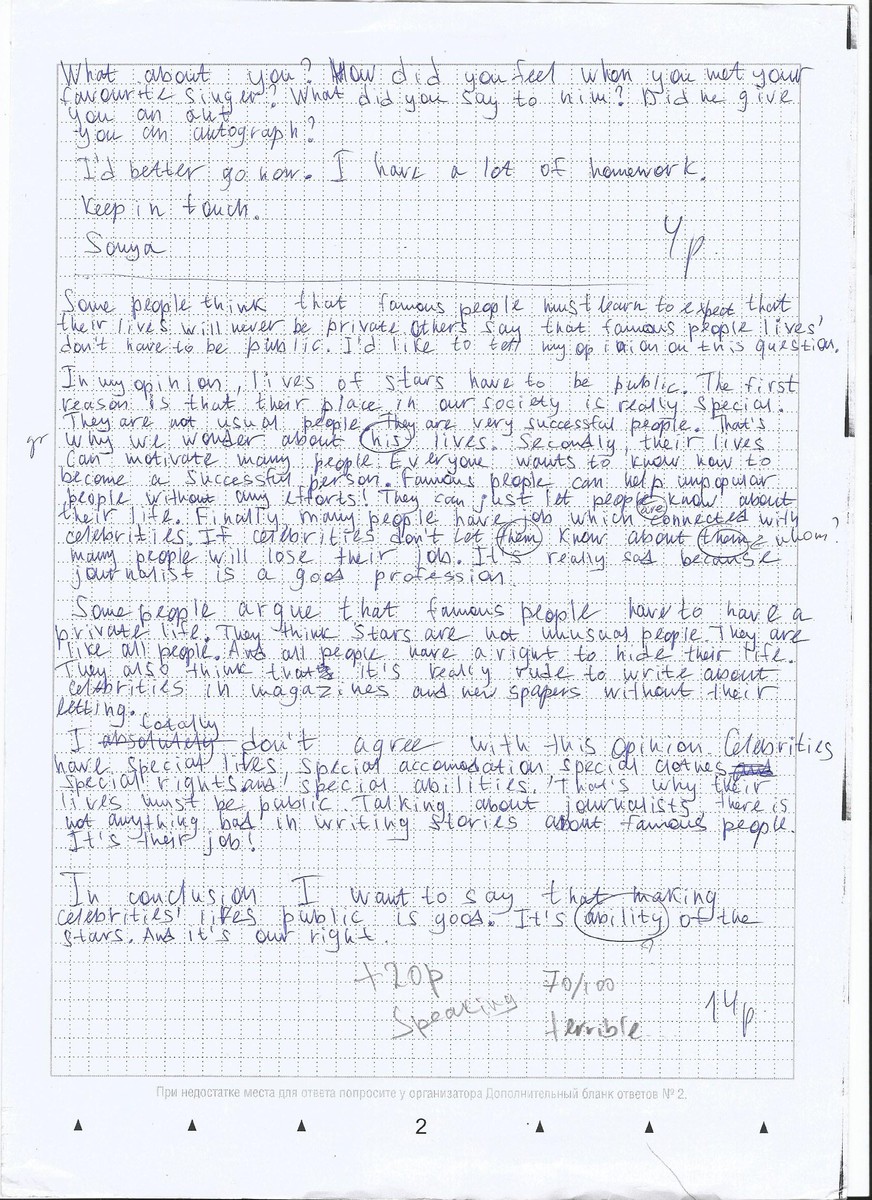 What about you? How did you feel when you met your
favourite singer? What did you say to him? Did he give
you an aut
you an autograph?
I'd better go now. I have a lot of homework.
Keep in touch.
Sonya
4p
Some people think that famous people must learn to expect that
their lives will never be private. Others say that famous people lives'
don't have to be public. I'd like to tell my opinion on this question.
In my opinion, lives of stars have to be public. The first
reason is that their place in our society is really special.
They are not usual people. They are very successful people. That's
gr why we wonder about his lives. Secondly, their lives
can motivate many people. Everyone wants to know how to
become a successful person. Famous people can help unpopular
people without any efforts! They can just let people know about
their life. Finally, many people have job which are connected with
celebrities. If celebrities don't let them know about them, whom?
many people will lose their job. It's really sad because
journalist is a good profession.
Some people argue that famous people have to have a
private life. They think stars are not unusual people. They are
like all people. And all people have a right to hide their life.
They also think that it's really rude to write about
celebrities in magazines and newspapers without their
letting.
totally
I absolutely don't agree with this opinion. Celebrities
have special lifes, special accomodation, special clothes and
special rights and special abilities. That's why their
lives must be public. Talking about journalists, there is
not anything bad in writing stories about famous people.
It's their job!
In conclusion I want to say that making
celebrities' lifes public is good. It's ability of the
?
stars. And it's our right.
+20p
Speaking
70/100
terrible
14p
При недостатке места для ответа попросите у организатора Дополнительный бланк ответов № 2.
2